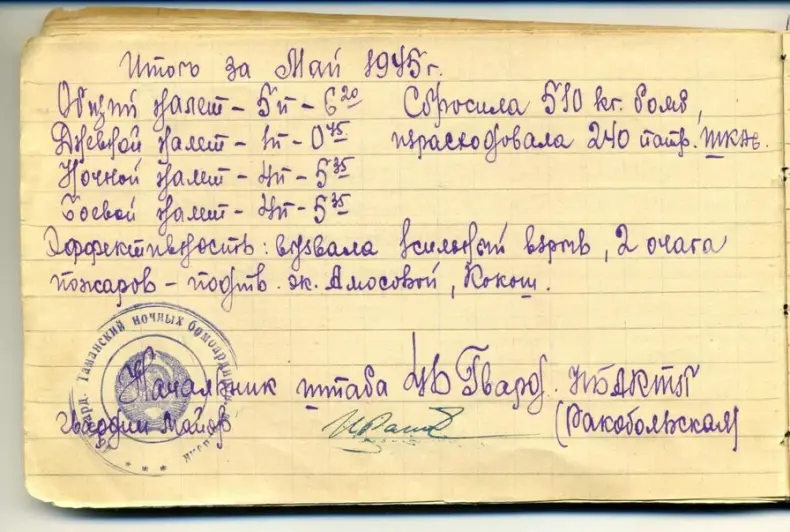 Итого за Май 1945г.
Общий налет – 5п – 6 20
Сбросила 510 кг. бомб,
Дневной налет – 1п – 0 45
израсходовала 240 патр. ШКАС.
Ночной налет – 4п – 5 35
Боевой налет – 4п – 5 35
Эффективность: вызвала 1 сильный взрыв, 2 очага
пожаров – подтв. эк. Амосовой, Кокош.
Таманский ночных бомбард
Начальник штаба 46 Гвард. НБАКТП
Гвардии Майор
(Ракобольская)